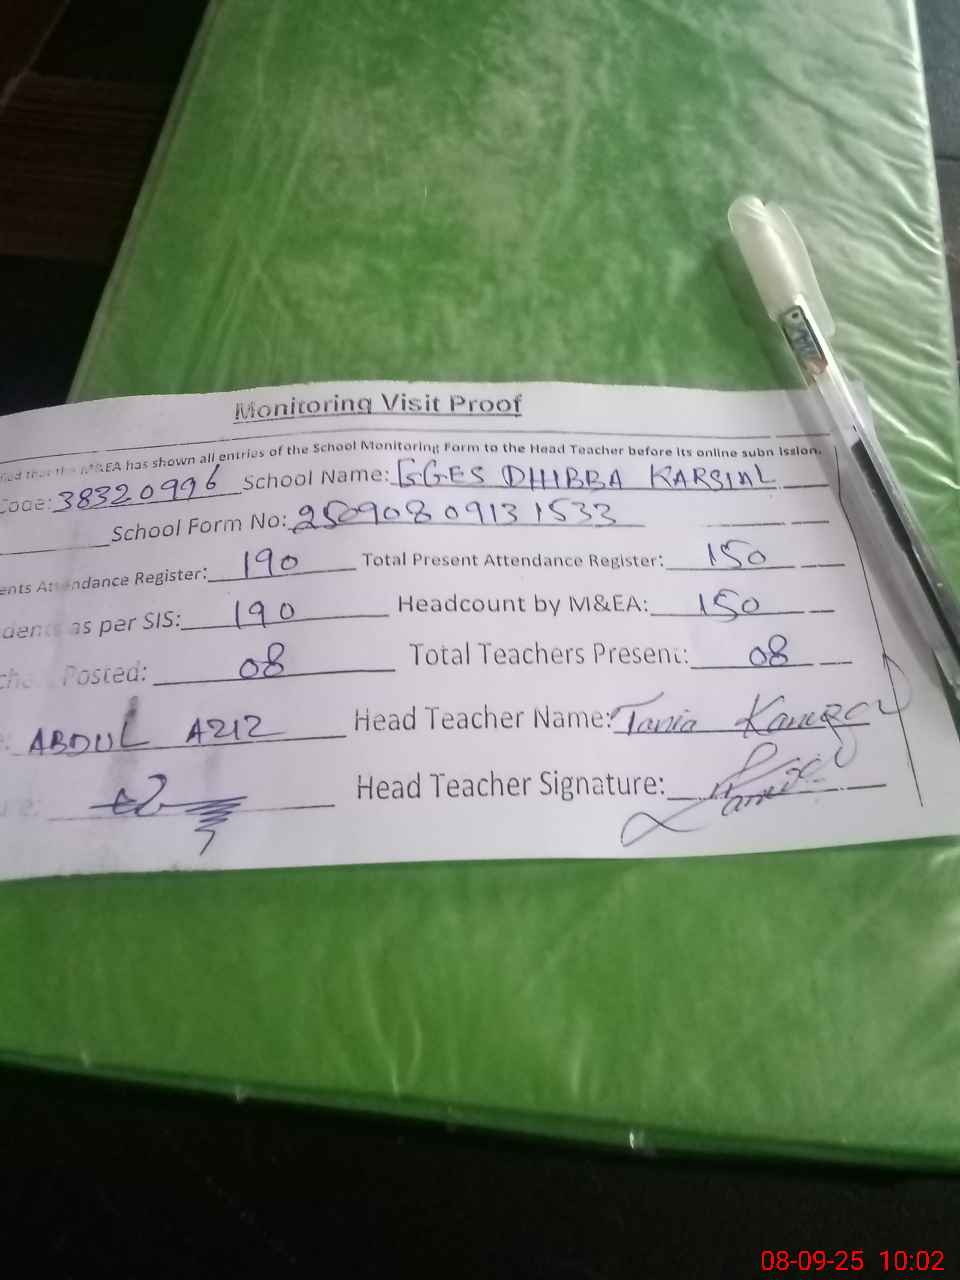 Monitoring Visit Proof
M&EA has shown all entries of the School Monitoring Form to the Head Teacher before its online subn ission.
Code: 38320996 School Name: GGES DHIBBA KARSIAL
School Form No: 250908 09131533
ents Attendance Register: 190 Total Present Attendance Register: 150
dents as per SIS: 190 Headcount by M&EA: 150
Posted: 08 Total Teachers Present: 08
ABDUL AZIZ Head Teacher Name: Tania
Head Teacher Signature:
08-09-25 10:02